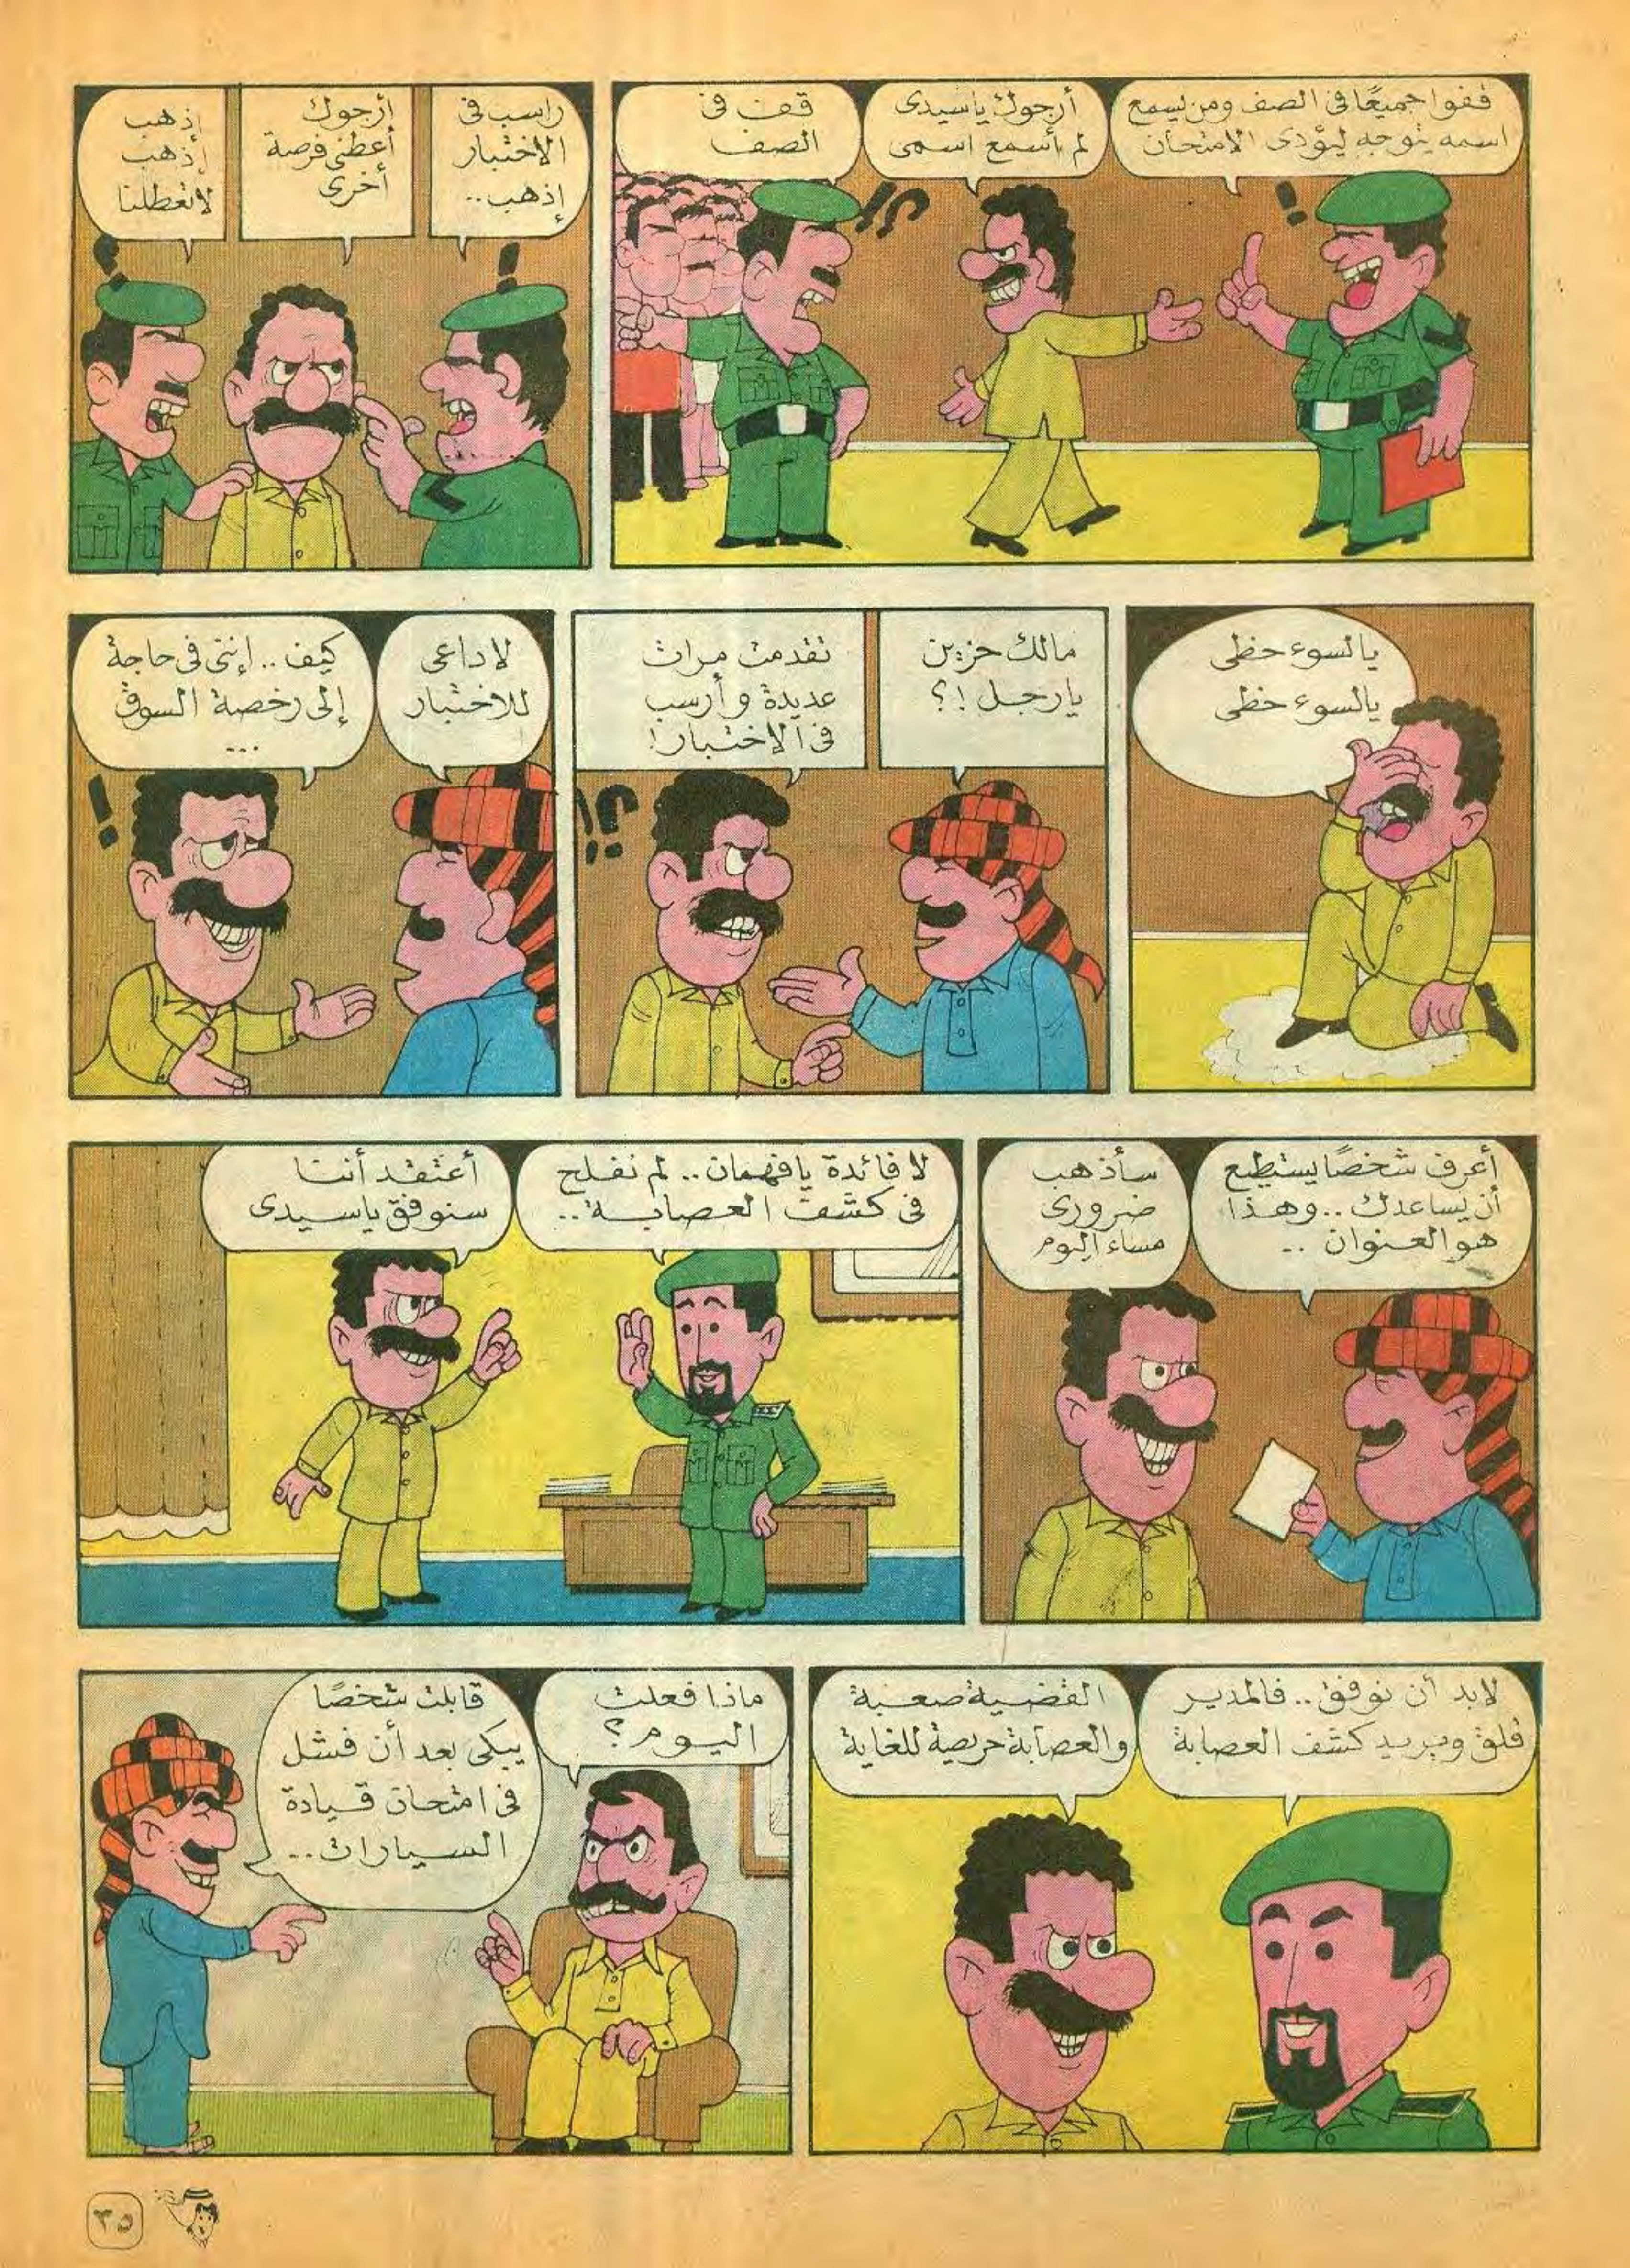 قفوا جميعًا فى الصف ومن يسمع
اسمه يتوجه ليؤدى الامتحان
أرجوك ياسيدى
لم أسمع اسمى
قف فى
الصف
راسب فى
الاختبار
إذهب..
أرجوك
أعطنى فرصة
أخرى
إذهب
إذهب
لاتعطلنا
يالسوء حظى
يالسوء حظى
مالك حزين
يارجل !؟
تقدمت مرات
عديدة وأرسب
فى الاختبار!
لاداعى
للاختبار
!
كيف.. إننى فى حاجة
إلى رخصة السوق
...
أعرف شخصًا يستطيع
أن يساعدك.. وهذا
هو العنوان ..
سأذهب
ضرورى
مساء اليوم
لا فائدة يافهمان.. لم نفلح
فى كشف العصابة..
أعتقد أننا
سنوفق ياسيدى
لابد أن نوفق.. فالمدير
قلق ويريد كشف العصابة
القضية صعبة
والعصابة حريصة للغاية
ماذا فعلت
اليوم؟
قابلت شخصًا
يبكى بعد أن فشل
فى امتحان قيادة
السيارات..
٣٥